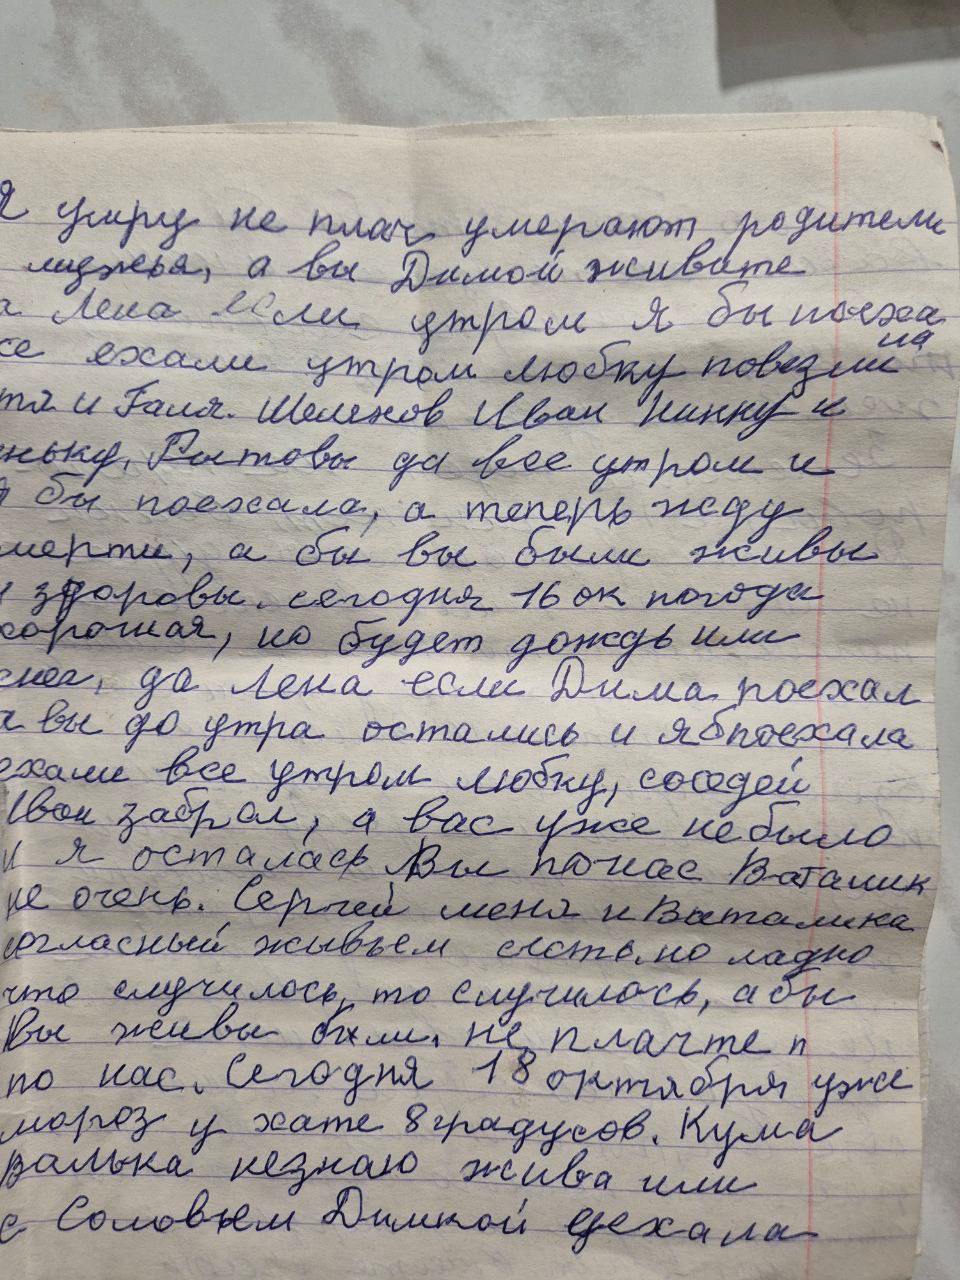 Я умру не плач умерают родители
лиджья, а вы Димой живите
а Лена если утром я бы поеха
се ехали утром Любку повезли на
тя и Галя. Шелехов Иван Нинку и
ньку, Рытовы да все утром и
я бы поехала, а теперь жду
мерти, а бы вы были живы
и здоровы. сегодня 16 ок погода
хорошая, но будет дождь или
снег, да Лена если Дима поехал
а вы до утра остались и я б поехала
ехали все утром Любку, соседей
Иван забрал, а вас уже небыло
и я осталась Вы понас Ваталик
не очень. Сергей меня и Виталика
согласный жывьем систь, но ладно
что случилось, то случилось, абы
Вы живы были. не плачте п
по нас. Сегодня 18 октября уже
мороз у хате 8 градусов. Кума
валька незнаю жива или
с Соловьем Димкой уехала